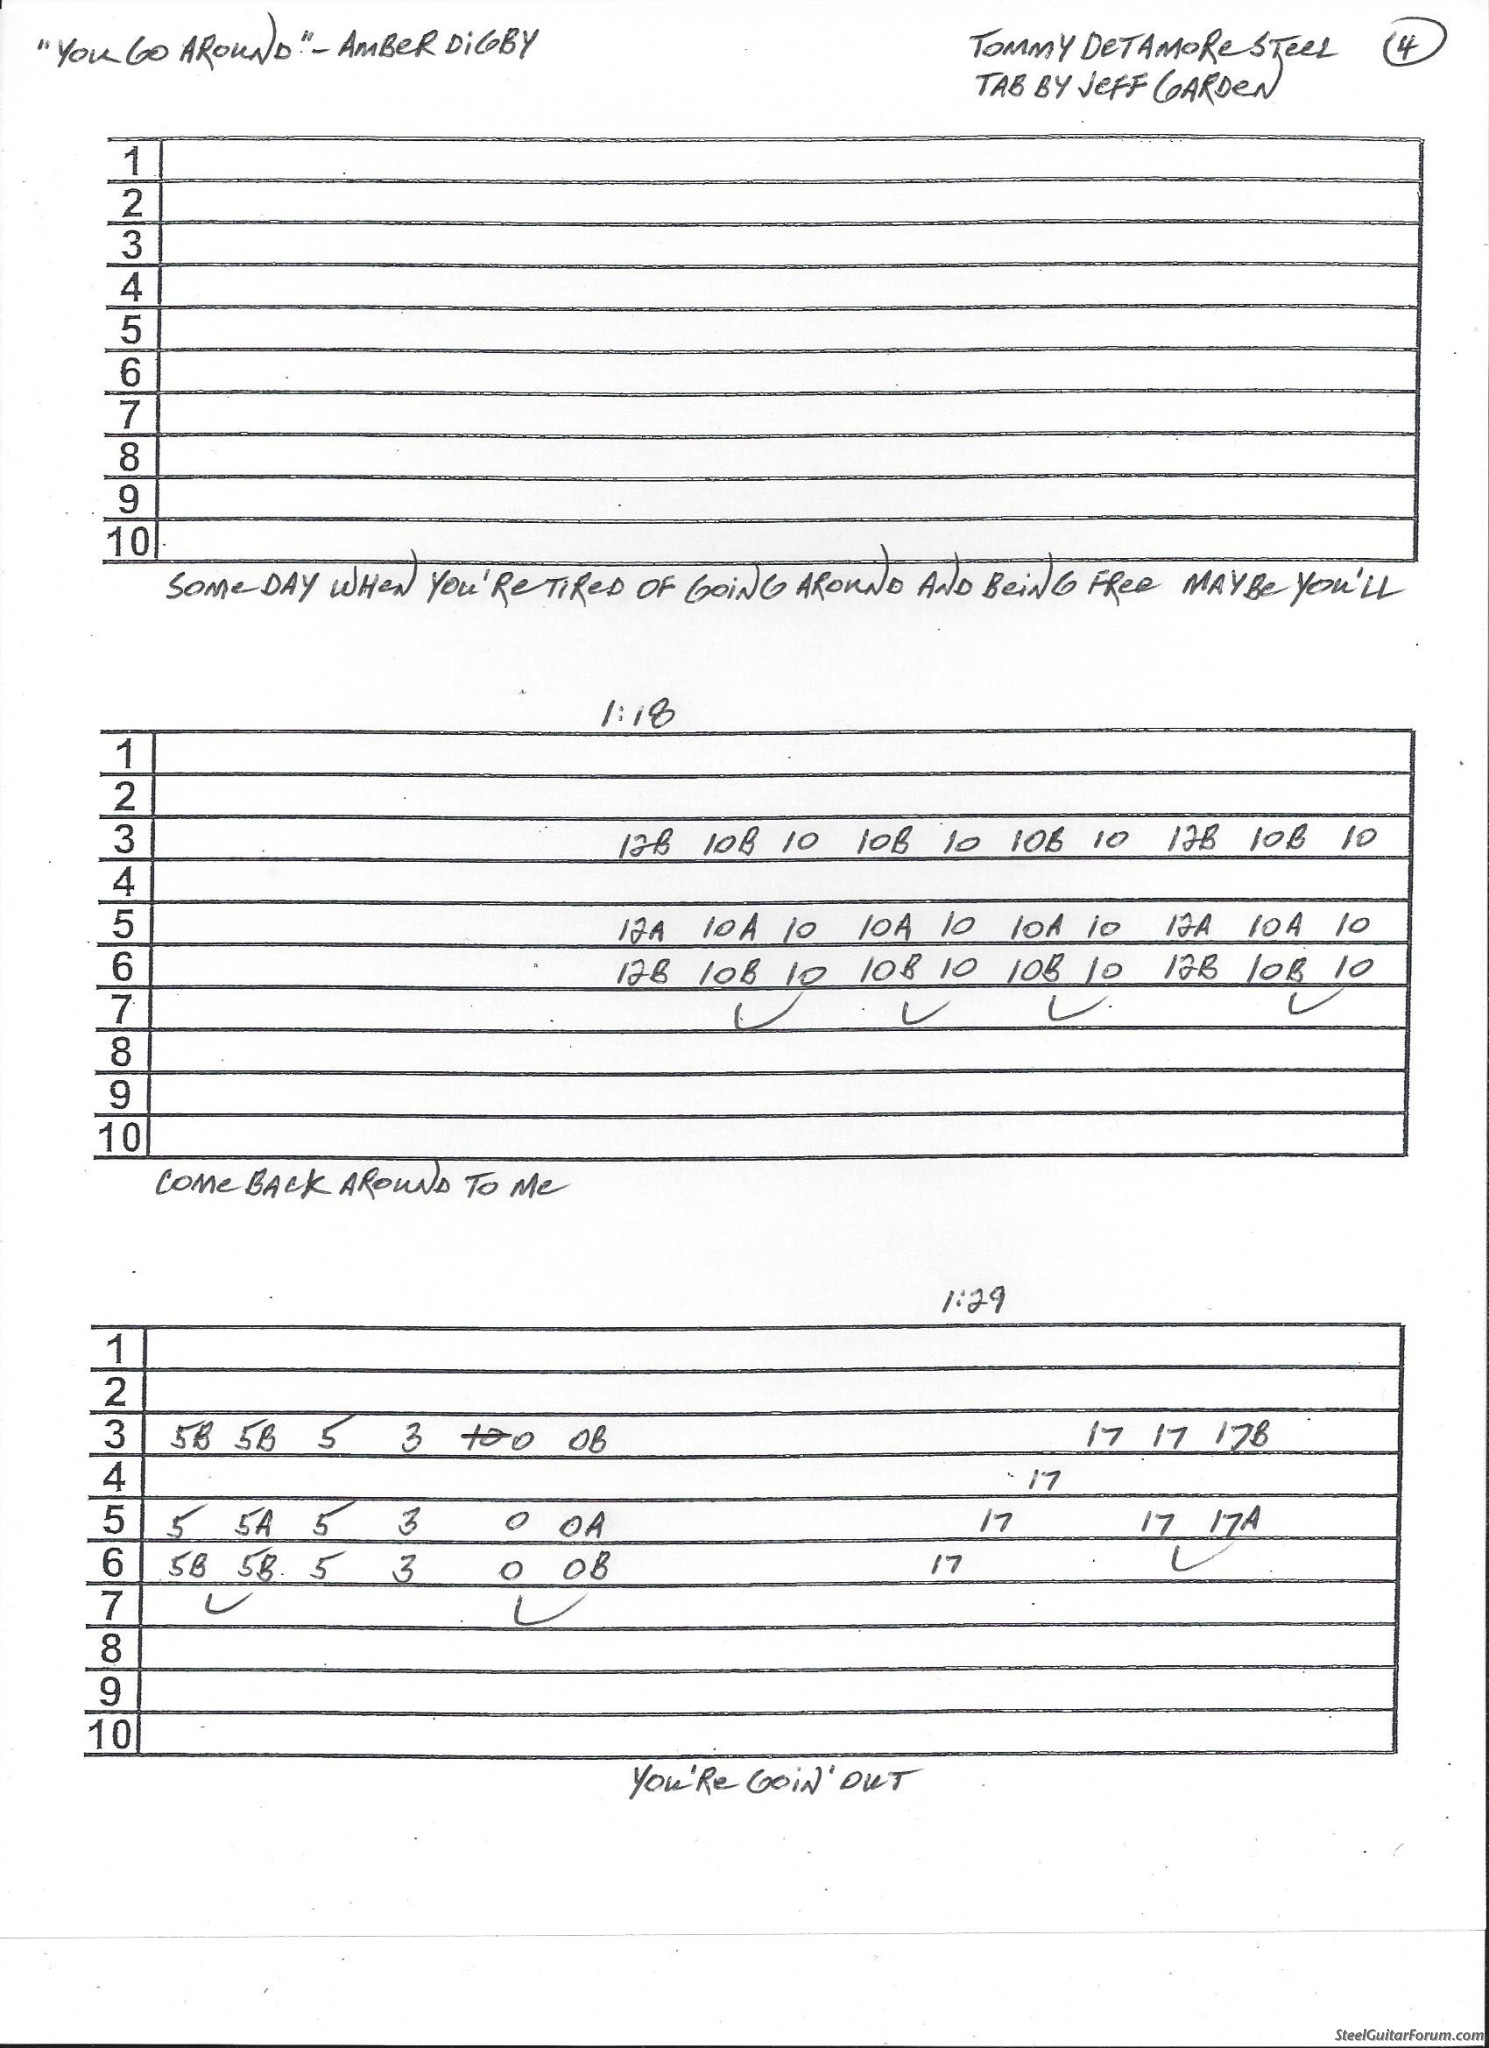 "YOU GO AROUND" - AMBER DIGBY
TOMMY DETAMORE STEEL 4
TAB BY JEFF GARDEN
1
2
3
4
5
6
7
8
9
10
SOMEDAY WHEN YOU'RE TIRED OF GOING AROUND AND BEING FREE MAYBE YOU'LL
1:18
1
2
3 12B 10B 10 10B 10 10B 10 12B 10B 10
4
5 12A 10A 10 10A 10 10A 10 12A 10A 10
6 12B 10B 10 10B 10 10B 10 12B 10B 10
7
8
9
10
COME BACK AROUND TO ME
1:29
1
2
3 5B 5B 5 3 10 0 0B 17 17 17B
4 17
5 5 5A 5 3 0 0A 17 17 17A
6 5B 5B 5 3 0 0B 17
7
8
9
10
YOU'RE GOIN' OUT
SteelGuitarForum.com